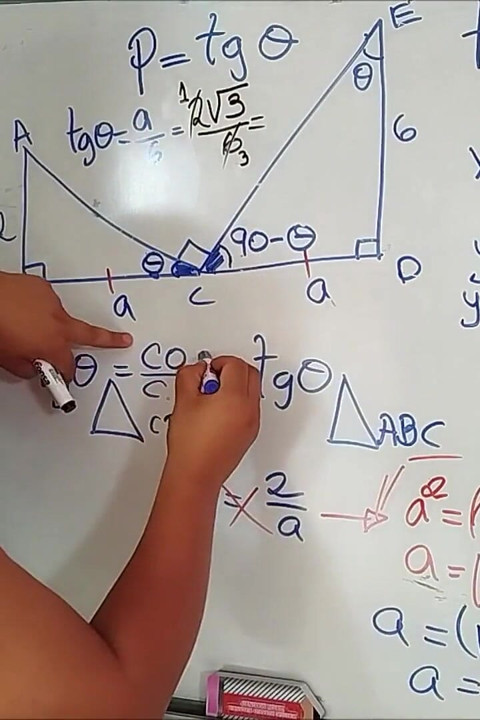 P = tg θ
tgθ = a/6 = 1 2√3/6 3 =
E
θ
6
A
2
θ
90-θ
D
a
C
a
θ = CO
tgθ
ABC
= 2/a
a² =
a =
a = (
a =
y